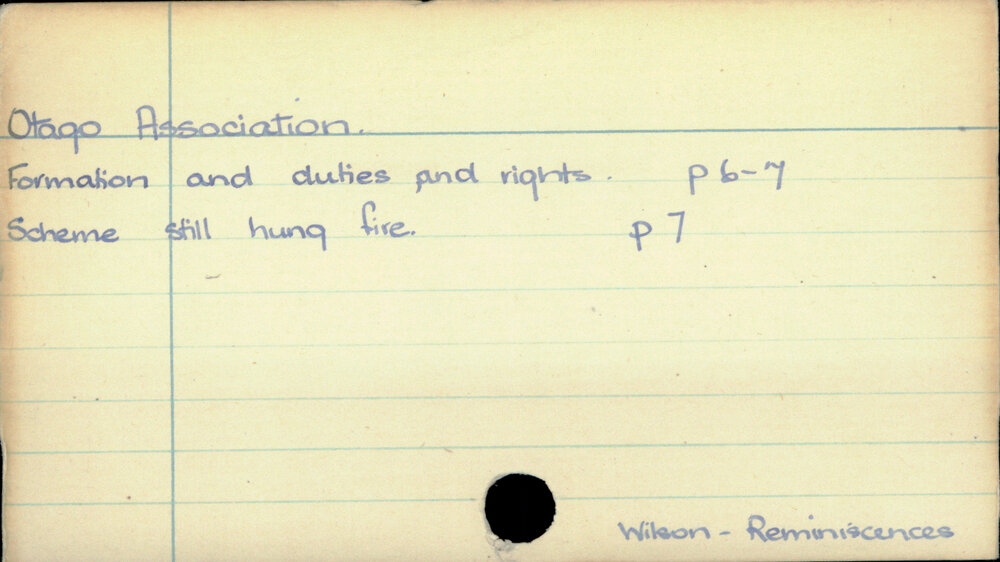 Otago Association.
Formation and duties and rights. p 6-7
Scheme still hung fire. p 7
Wilson - Reminiscences